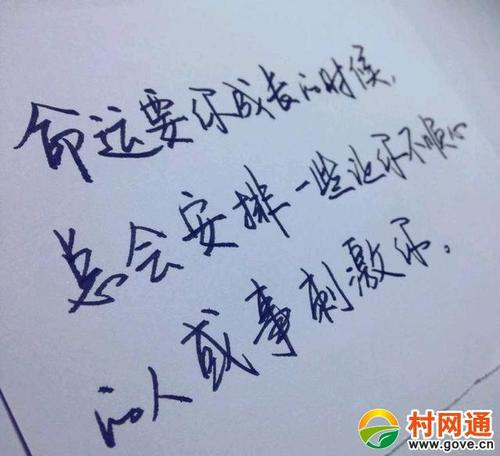 命运要你成长的时候，
总会安排一些让你不顺心
的人或事刺激你。
村网通
www.gove.cn